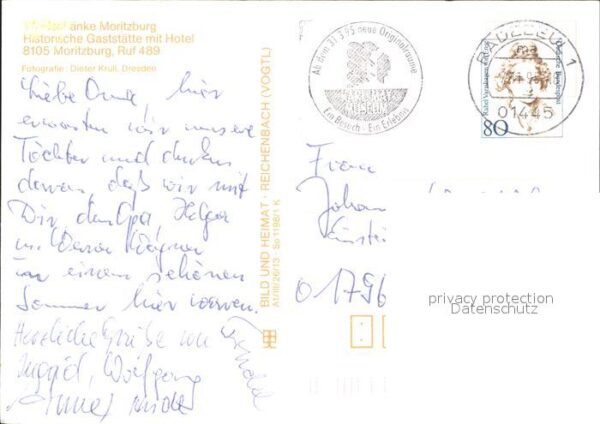 Moritzburg
Historische Gaststätte mit Hotel
8105 Moritzburg, Ruf 489
Fotografie: Dieter Krull, Dresden
Liebe Oma, hier
erwarten wir unsere
Töchter und denken
daran, daß wir mit
Dir, dem Opa, Helga
u.
in einem schönen
Sommer hier waren.
Herzliche Grüße von
Ingrid, Wolfgang
BILD UND HEIMAT · REICHENBACH (VOGTL)
A1/III/26/13
Ab dem 31.3.95 neue Originalräume
Ein Besuch - Ein Erlebnis
RADEBEUL 1
01445
Deutsche Bundespost
80
Frau
Johan
0 1796
privacy protection
Datenschutz